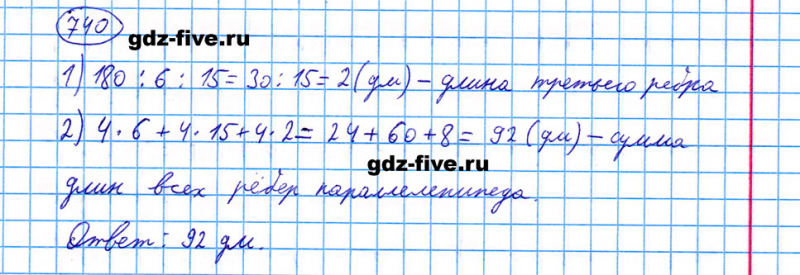 740
gdz-five.ru
1) 180 : 6 : 15 = 30 : 15 = 2 (дм) – длина третьего ребра
2) 4 · 6 + 4 · 15 + 4 · 2 = 24 + 60 + 8 = 92 (дм) – сумма
gdz-five.ru
длин всех рёбер параллелепипеда.
Ответ: 92 дм.